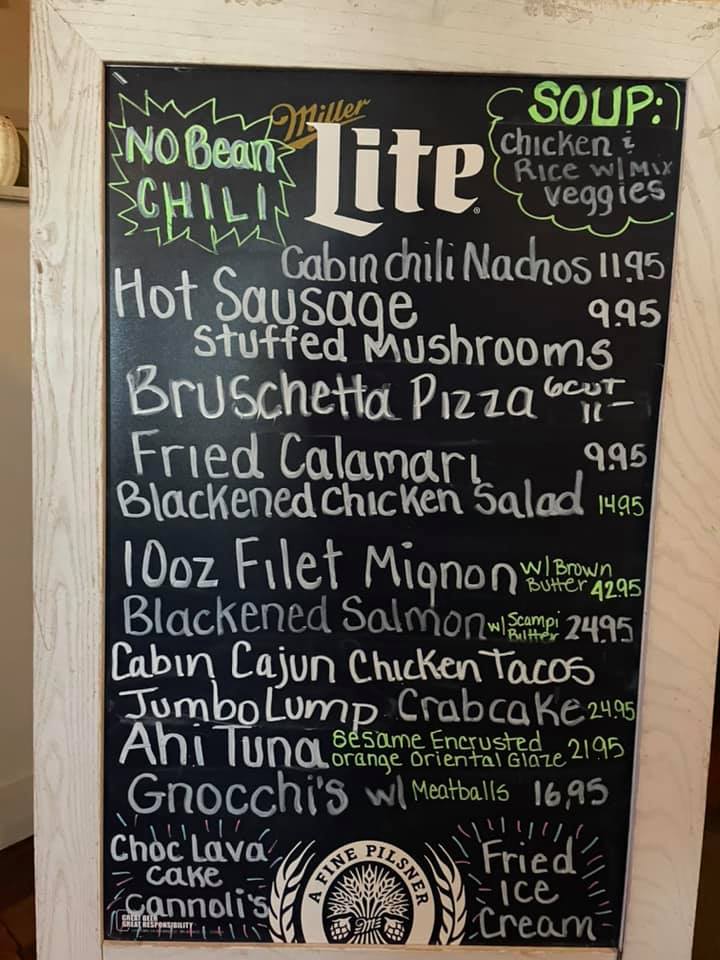 NO Bean
CHILI
Miller
Lite
SOUP:
chicken &
Rice w/ Mix
veggies
Cabin chili Nachos 11.95
Hot Sausage 9.95
Stuffed Mushrooms
Bruschetta Pizza 6CUT 11-
Fried Calamari 9.95
Blackened Chicken Salad 14.95
10oz Filet Mignon w/ Brown Butter 42.95
Blackened Salmon w/ Scampi Butter 24.95
Cabin Cajun Chicken Tacos
Jumbo Lump Crabcake 24.95
Ahi Tuna Sesame Encrusted orange Oriental Glaze 21.95
Gnocchi's w/ Meatballs 16.95
Choc Lava
cake
Cannoli's
GREAT BEER
GREAT RESPONSIBILITY
A FINE PILSNER
Fried
ICE
Cream